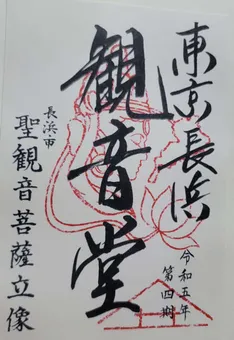 東京長浜
観音堂
長浜市
聖観音菩薩立像
令和五年
第四期